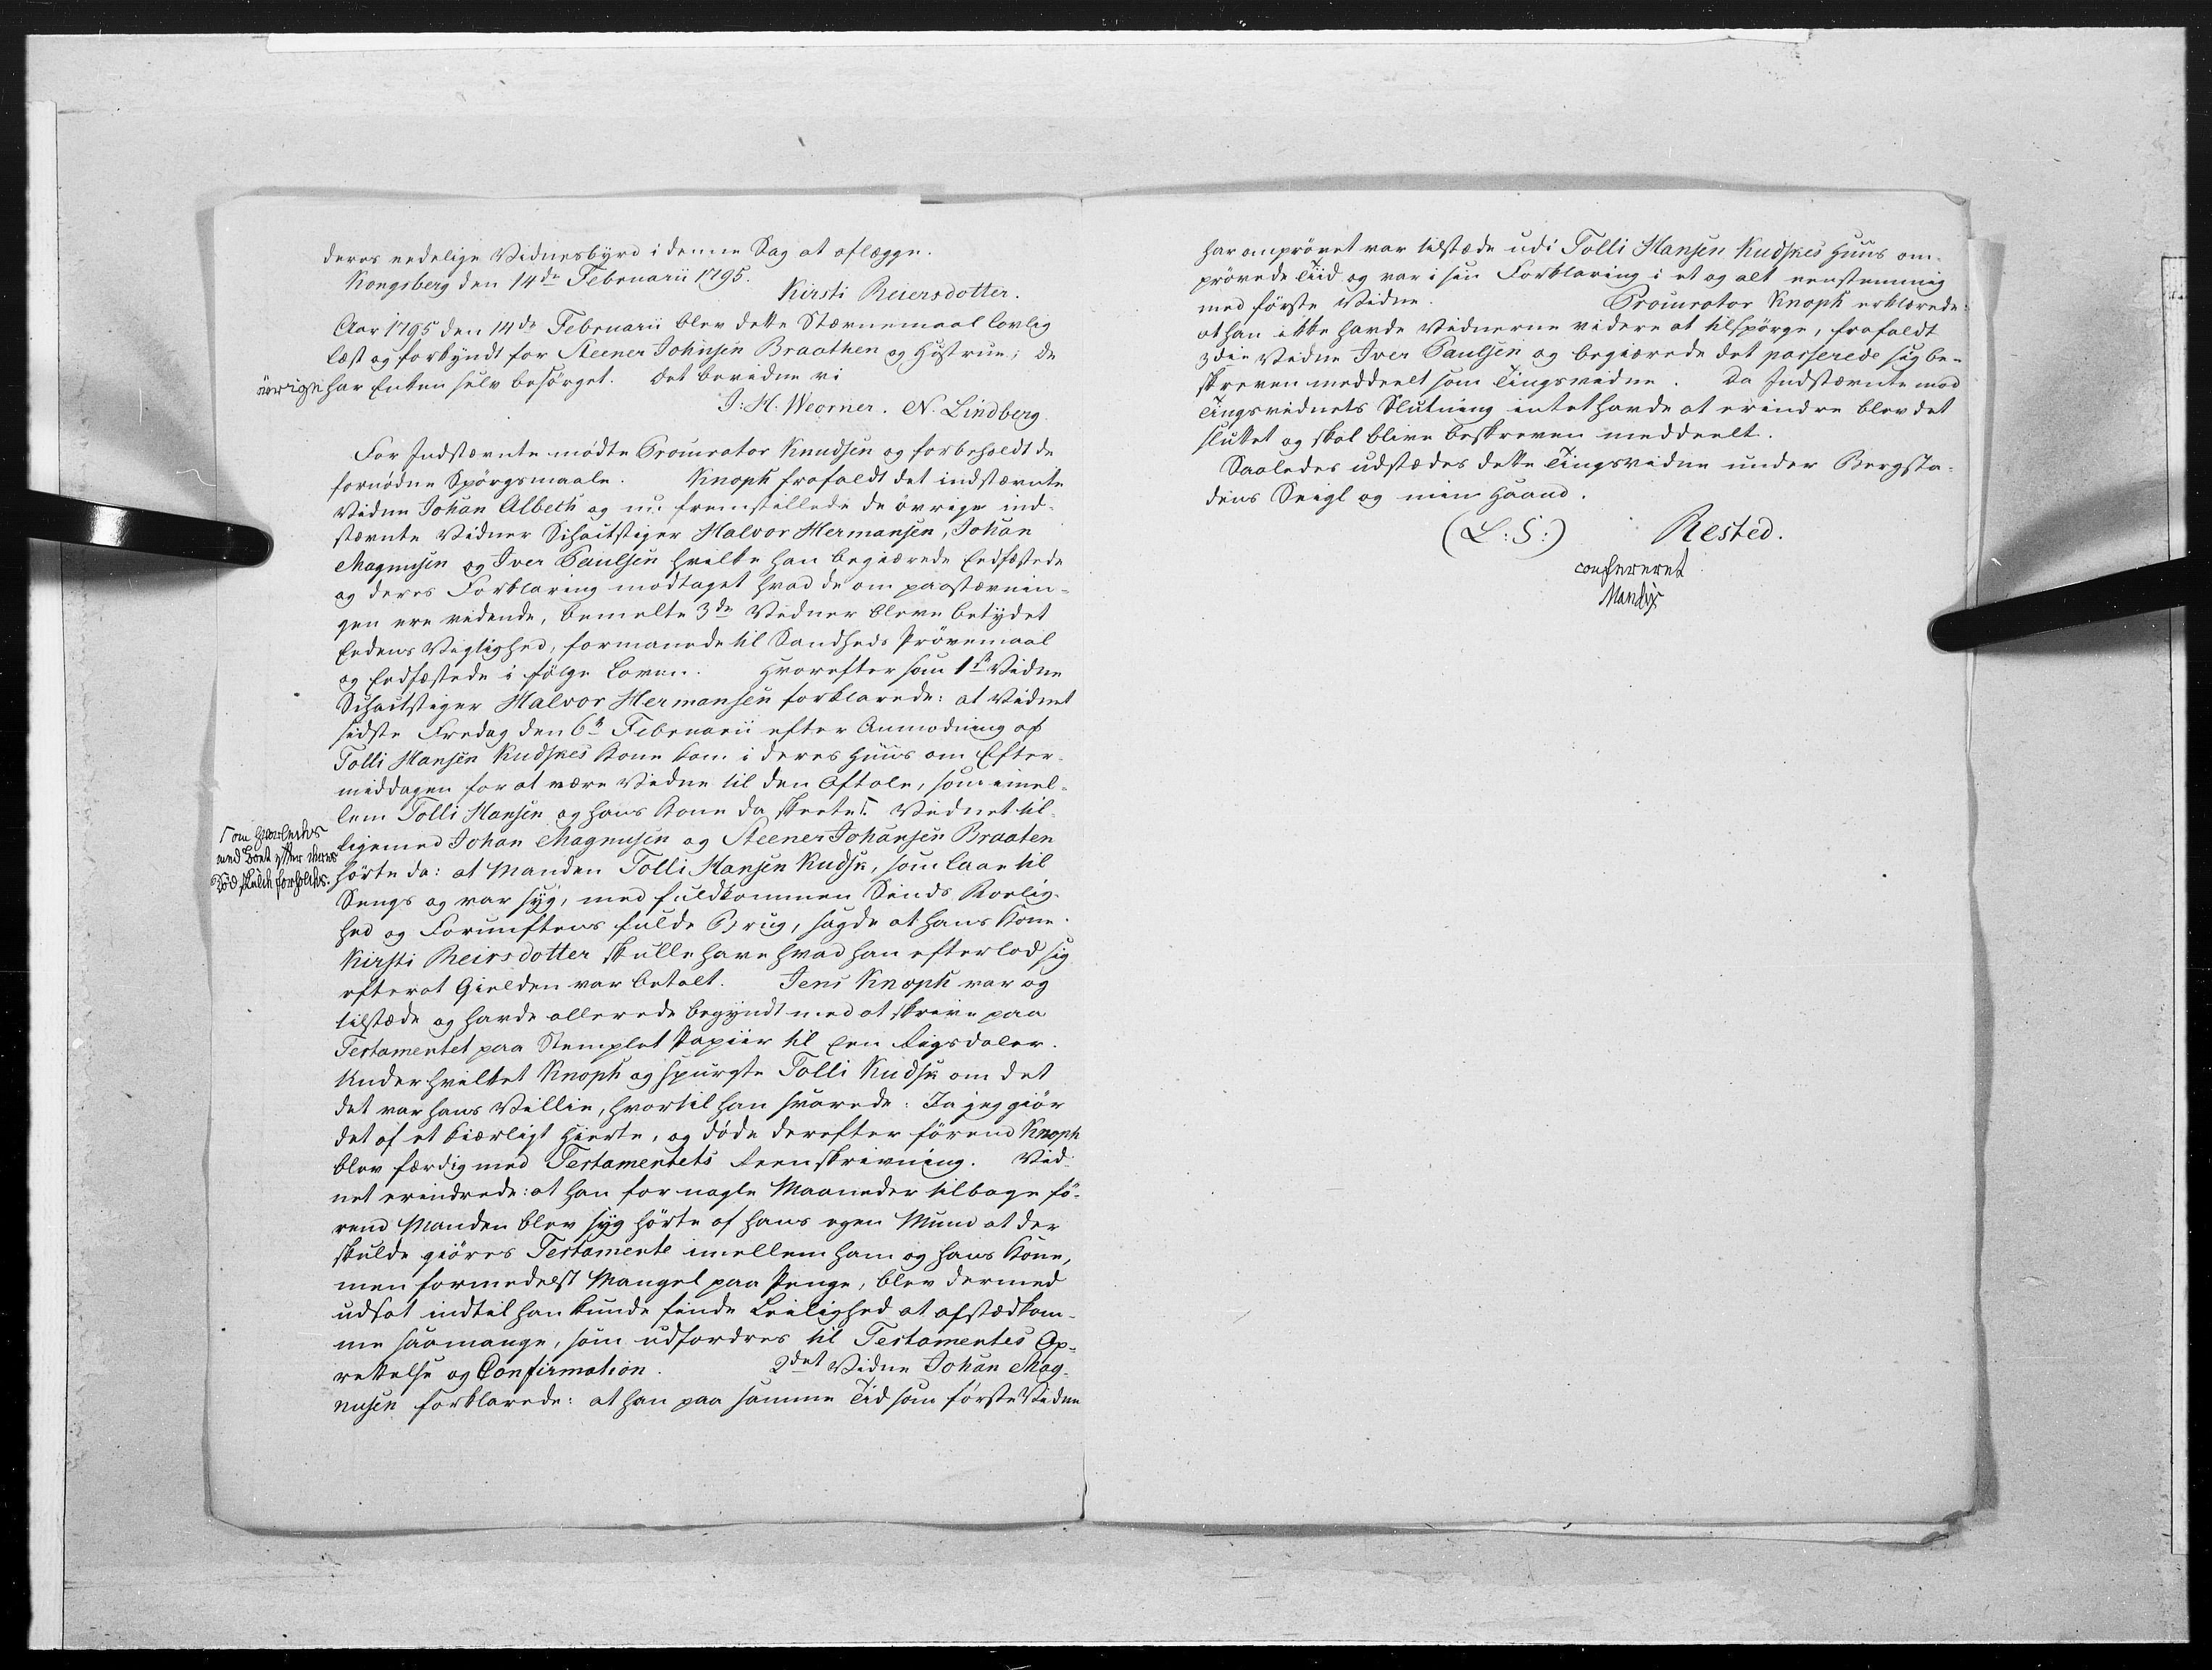 deres eedelige Vidnesbyrd i denne Sag at aflægge.
Kongsberg den 14de Februarii 1795.
Kirsti Reiersdotter.
Aar 1795 den 14de Februarii blev dette Stævnemaal lovlig
læst og forkyndt for Steener Johnsen Braathen og Hustrue; de
övrige har Enken selv besørget. Det bevidne vi
J: H. Weorner. N. Lindberg.
For Indstævnte mødte Procurator Knudsen og forbeholdt de
fornødne Spörgsmaale. Knoph frafaldt det indstævnte
Vidne Johan Albeth og nu fremstillede de övrige ind-
stævnte Vidner Schaitstiger Halvor Hermansen, Johan
Magnusen og Iver Paulsen hvilke han begiærede Eedfæstede
og deres Forklaring modtaget hvad de om paastævnin-
gen ere vidende, bemelte 3de Vidner bleve betydet
Eedens Vigtighed, formanede til Sandheds Prövemaal
og Eedfæstede i følge Loven. Hvorefter som 1ste Vidne
Schaitstiger Halvor Hermansen forklarede: at Vidnet
sidste Fredag den 6te Februarii efter Anmodning af
Tolli Hansen Kudskes Kone kom i deres Huus om Efter-
middagen for at være Vidne til den Aftale, som imel-
lem Tolli Hansen og hans Kone da skeete Γ. Vidnet til-
Γ om hvorledes
med Boet efter deres
Död skulde forholdes.
ligemed Johan Magnusen og Steener Johansen Braaten
hörte da: at Manden Tolli Hansen Kudsk, som laae til
Sengs og var syg, med fuldkommen Sinds Roelig-
hed og Fornuftens fulde Brug, sagde at hans Kone
Kirsti Reirsdotter skulle have hvad han efterlod sig
efterat Gielden var betalt. Jens Knoph var og
tilstæde og havde allerede begyndt med at skrive paa
Testamentet paa Stemplet Papiir til Een Rigsdaler.
Under hvilket Knoph og spurgte Tolli Kudsk om det
det var hans Villie, hvortil han svarede: Ja jeg giör
det af et kiærligt Hierte, og döde derefter förend Knoph
blev færdig med Testamentets Reenskrivning. Vid-
net erindrede: at han for nogle Maaneder tilbage fö-
rend Manden blev syg hörte af hans egen Mund at der
skulde giöres Testamente imellem ham og hans Kone,
men formedelst Mangel paa Penge, blev dermed
udsat indtil han kunde finde Leilighed at afstædkom-
me saamange, som udfordres til Testamentes Op-
rettelse og Confirmation. 2det Vidne Johan Mag-
nusen forklarede: at han paa samme Tid som første Vidne
har omprövet var tilstæde udi Tolli Hansen Kudskes Huus om-
prövede Tiid og var i sin Forklaring i et og alt eenstemmig
med første Vidne. Procurator Knoph erklærede:
at han ikke havde Vidnerne videre at tilspörge, frafaldt
3die Vidne Iver Paulsen og begiærede det passerede sig be-
skreven meddeelt som Tingsvidne. Da Indstævnte mod
Tingsvidnets Slutning intet havde at erindre blev det
sluttet og skal blive beskreven meddeelt.
Saaledes udstædes dette Tingsvidne under Bergsta-
dens Seigl og min Haand.
(L: S:) Rested.
confereret
Mandix